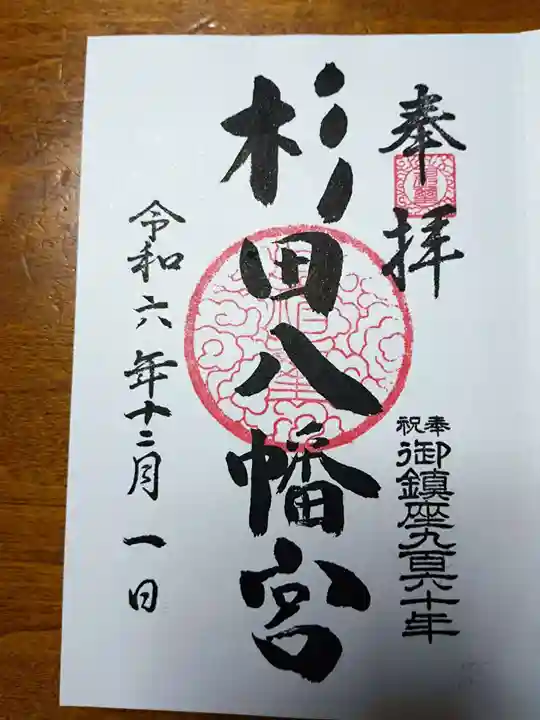 奉拝
奉祝
御鎮座九百六十年
杉田八幡宮
令和六年十二月一日